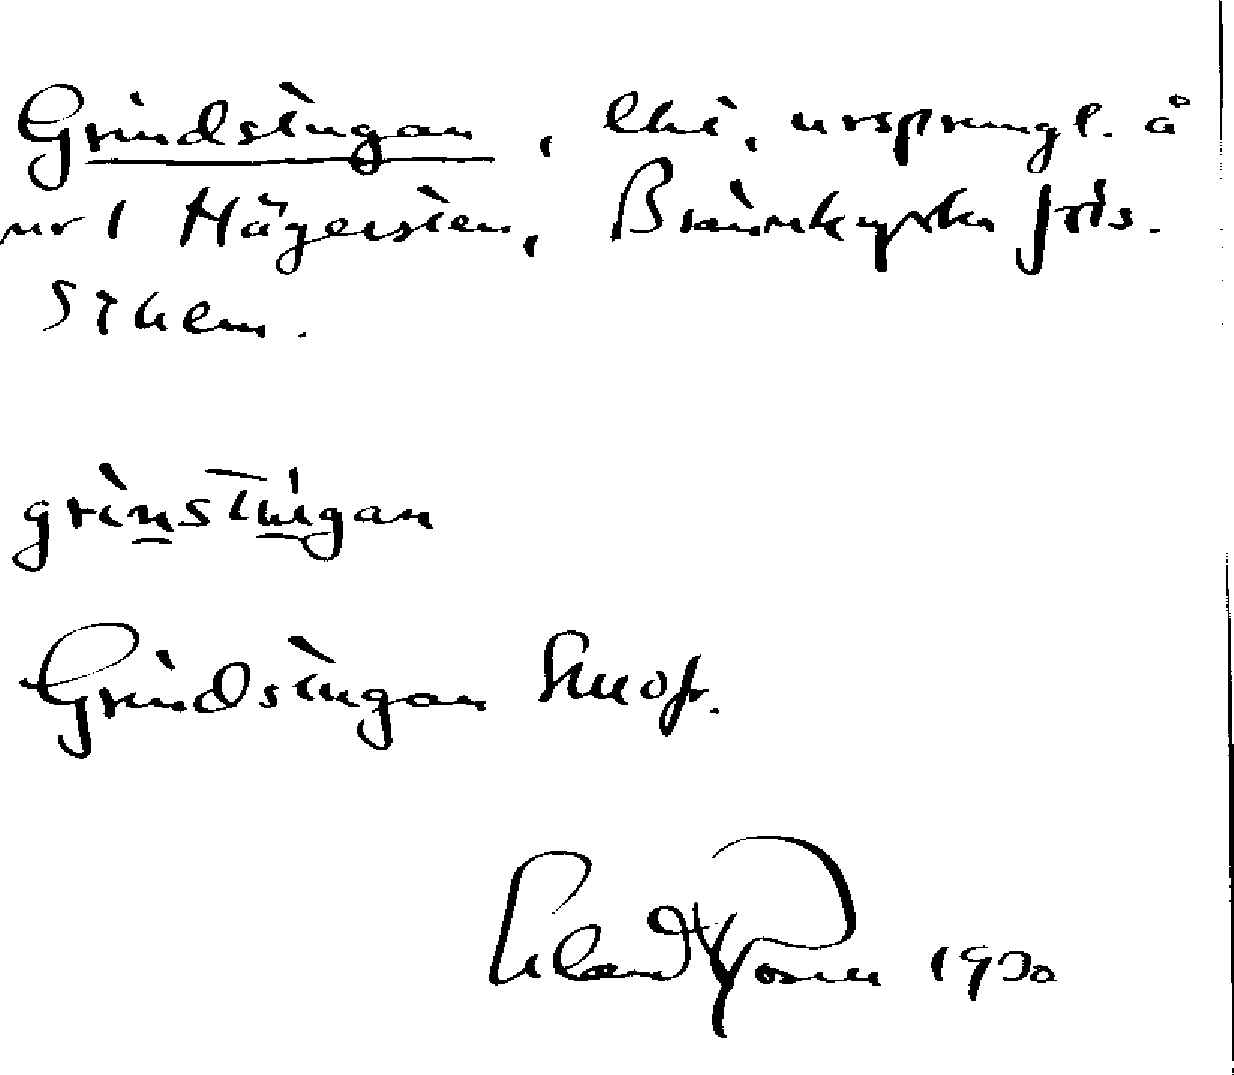 Grindstugan, lht, ursprungl. å
nr 1 Hägersten, Brännkyrka förs.
Sthlm.
grinstugan
Grindstugan
1930